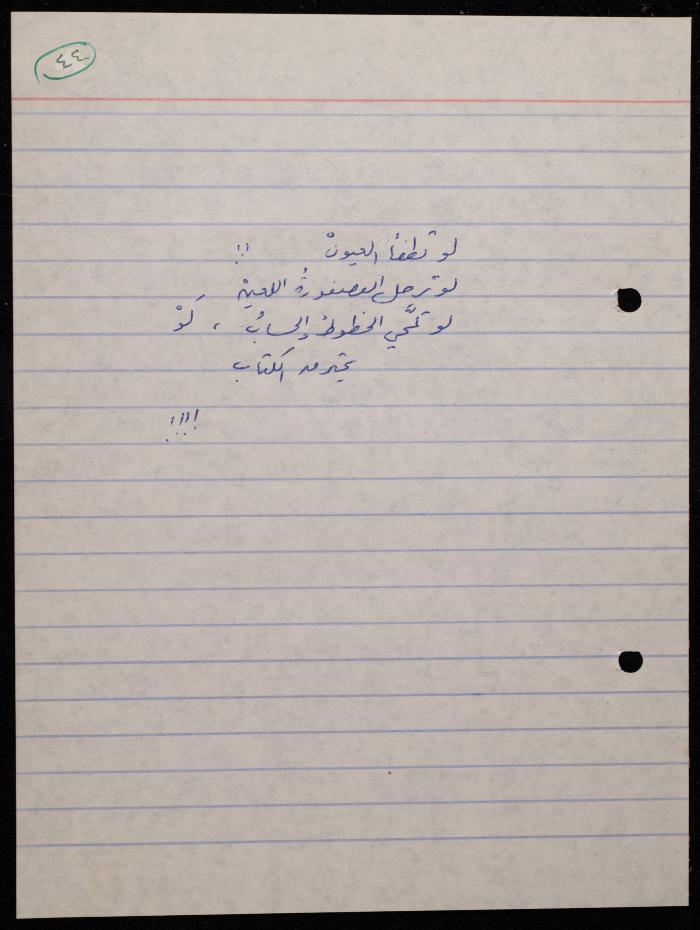 ٤٤
لو تطفأ العيونْ !!
لو ترحل العصفورةُ اللعينْ
لو تمَّحي الخطوطُ والحسابُ ، لَوْ
يحترق الكتاب
!!!!